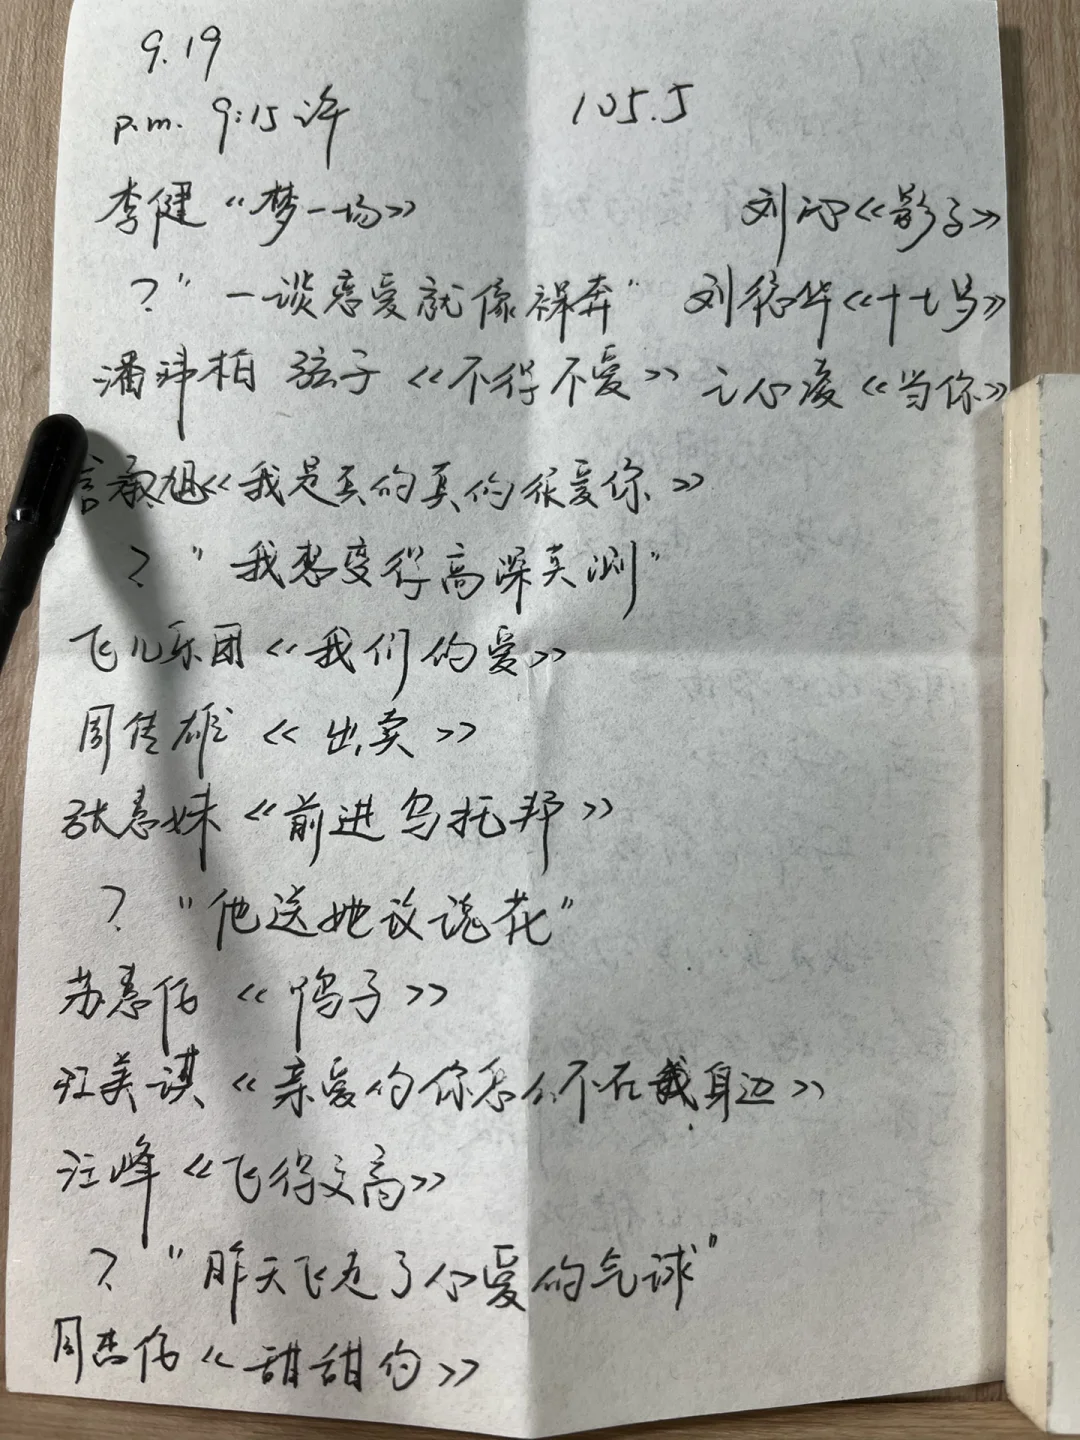 9.19
p.m. 9:15许
105.5
李健《梦一场》
?"一谈恋爱就像裸奔"
潘玮柏 弦子《不得不爱》
言承旭《我是真的真的很爱你》
?"我想变得高深莫测"
飞儿乐团《我们的爱》
周传雄《出卖》
张惠妹《前进乌托邦》
?"他送她玫瑰花"
苏慧伦《鸭子》
江美琪《亲爱的你怎么不在我身边》
汪峰《飞得更高》
?"昨天飞走了心爱的气球"
周杰伦《甜甜的》
刘沁《影子》
刘德华《十七岁》
王心凌《当你》